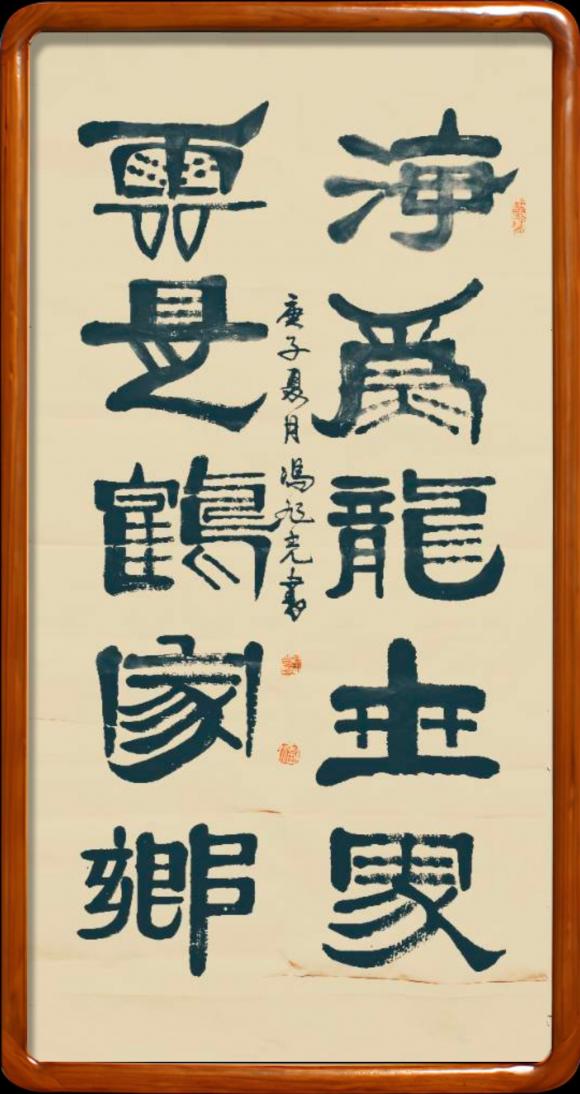 海為龍世界
雲是鶴家鄉
庚子夏月馮旭光書